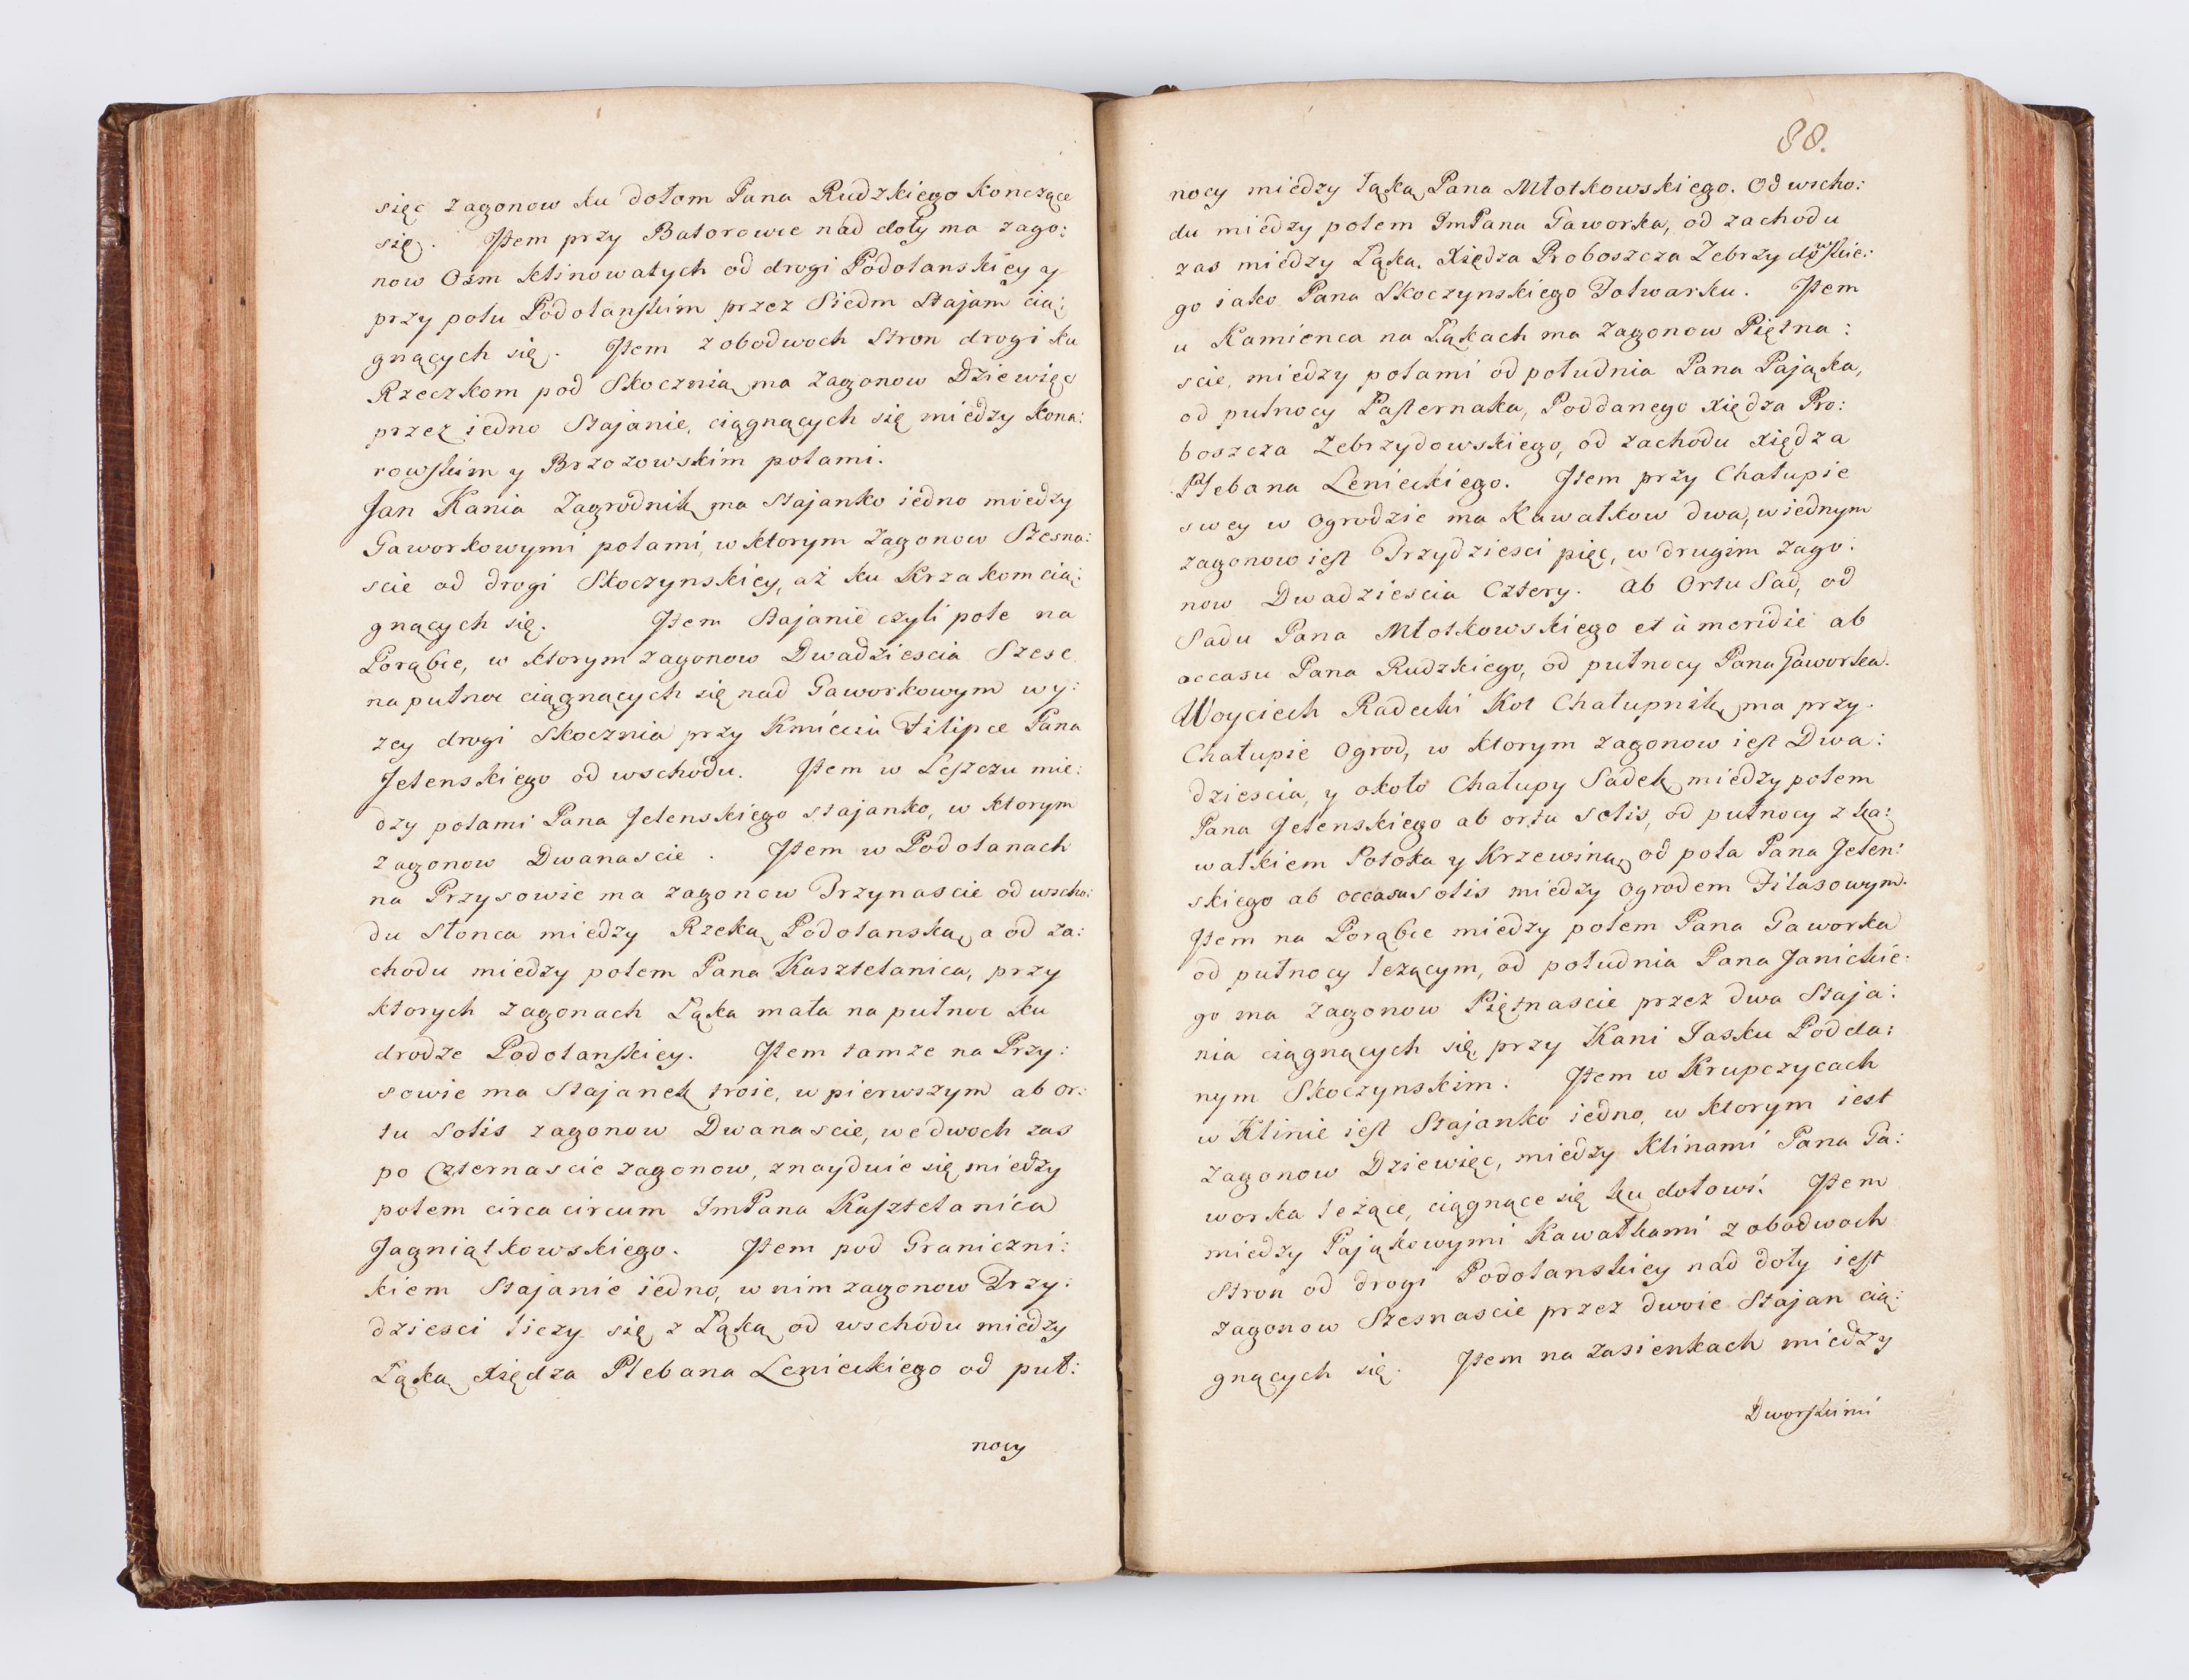 sięc zagonow ku dołom Pana Rudzkiego konczące
się. Jtem przy Batorowce nad doły ma zago:
now Ośm klinowatych od drogi Podolanskiey y
przy polu Podolanskim przez Siedm Stajam cią:
gnących się. Jtem z obodwoch Stron drogi ku
Rzeczkom pod Skocznią ma zagonow Dziewięc
przez iedno Stajanie, ciągnących się między Kona:
rowskim y Brzozowskim polami.
Jan Kania Zagrodnik ma Stajanko iedno miedzy
Gaworkowymi polami, w ktorym zagonow Szesna:
scie od drogi Skoczynskiey, aż ku Krzakom cią:
gnących się. Jtem Stajanie czyli pole na
Porąbce, w ktorym zagonow Dwadziescia Szesc
na pułnoc ciągnących się nad Gaworkowym wy:
zey drogi Skocznia przy Kmieciu Filipce Pana
Jelenskiego od wschodu. Jtem w Leszczu mie:
dzy polami Pana Jelenskiego stajanko, w ktorym
zagonow Dwanascie. Jtem w Podolanach
na Przysowie ma zagonow Trzynascie od wscho:
du Słonca miedzy Rzeką Podolanską, a od za:
chodu miedzy polem Pana Kasztelanica, przy
ktorych zagonach Łąka mała na pułnoc ku
drodze Podolanskiey. Jtem tamze na Przy:
sowie ma Stajanek troie, w pierwszym ab or:
tu Solis zagonow Dwanascie, we dwoch zas
po Czternascie zagonow, znayduie się miedzy
polem circa circum JmPana Kasztelanica
Jagniątkowskiego. Jtem pod Graniczni:
kiem Stajanie iedno, w nim zagonow Trzy:
dziesci liczy się z Łąką od wschodu miedzy
Łąką Xiędza Plebana Lenieckiego od puł:
nocy
88.
nocy miedzy łąką Pana Młotkowskiego. Od wscho:
du miedzy polem JmPana Gaworka, od zachodu
zas miedzy Łąką Xiędza Proboszcza Zebrzydowskie:
go iako Pana Skoczynskiego Folwarku. Jtem
u Kamienca na Łąkach ma zagonow Piętna:
scie, miedzy polami od południa Pana Pająka,
od pułnocy Pasternaka, Poddanego Xiędza Pro:
boszcza Zebrzydowskiego, od zachodu Xiędza
Plebana Lenieckiego. Jtem przy Chałupie
swey w Ogrodzie ma Kawałkow dwa, w iednym
zagonow iest Trzydziesci pięc, w drugim zago:
now Dwadziescia Cztery. ab Ortu Sad, od
Sadu Pana Młotkowskiego et à meridie ab
occasu Pana Rudzkiego, od pułnocy Pana Gaworka.
Woyciech Radecki Kot Chałupnik ma przy
Chałupie Ogrod, w ktorym zagonow iest Dwa:
dziescia, y około Chałupy Sadek miedzy polem
Pana Jelenskiego ab ortu Solis, od pułnocy z ka:
wałkiem Potoka y Krzewiną od pola Pana Jelen:
skiego ab occasu Solis miedzy Ogrodem Filasowym.
Jtem na Porąbce miedzy polem Pana Gaworka
od pułnocy leżącym, od południa Pana Janickie:
go ma zagonow Piętnascie przez dwa Staja:
nia ciągnących się, przy Kani Jasku Podda:
nym Skoczynskim. Jtem w Krupczycach
w Klinie iest Stajanko iedno, w ktorym iest
zagonow Dziewięc, miedzy Klinami Pana Ga:
worka leżące, ciągnące się ku dołowi. Jtem
miedzy Pająkowymi Kawałkami z obodwoch
Stron od drogi Podolanskiey nad doły iest
zagonow Szesnascie przez dwoie Stajan cią:
gnących się. Jtem na zasienkach miedzy
Dworskimi